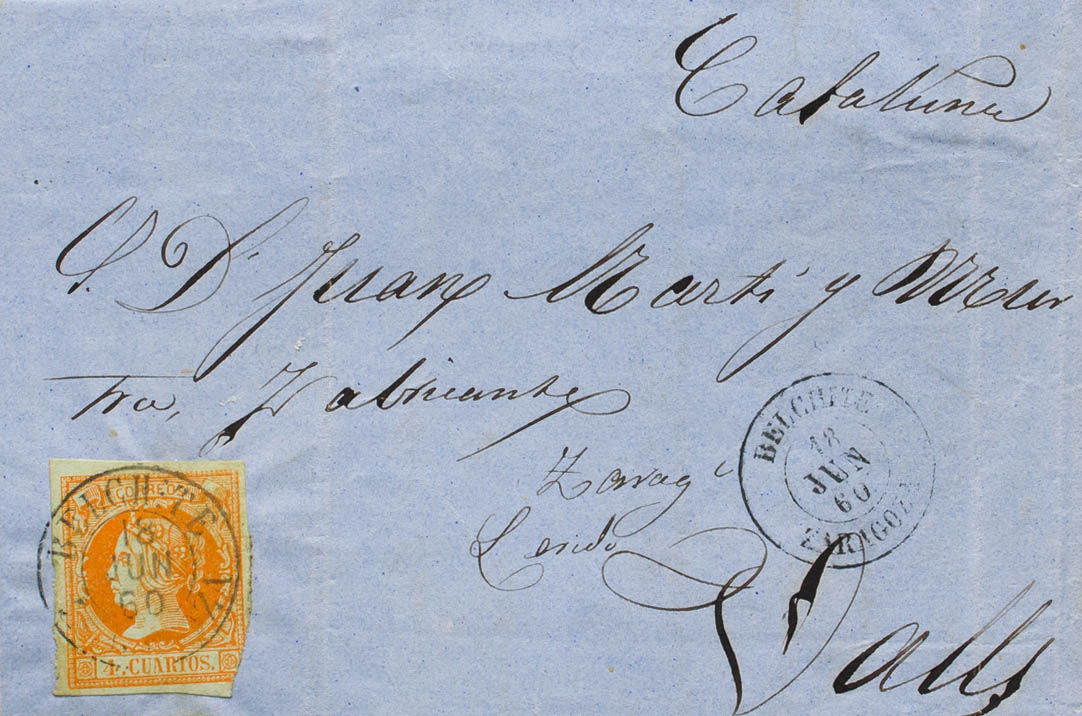 Cataluña
S. D. Juan Martí y
Fabricante
BELCHITE
18
JUN
60
ZARAGOZA
Zarag
Valls
CORREOS
BELCHITE
18
JUN
60
4 CUARTOS.